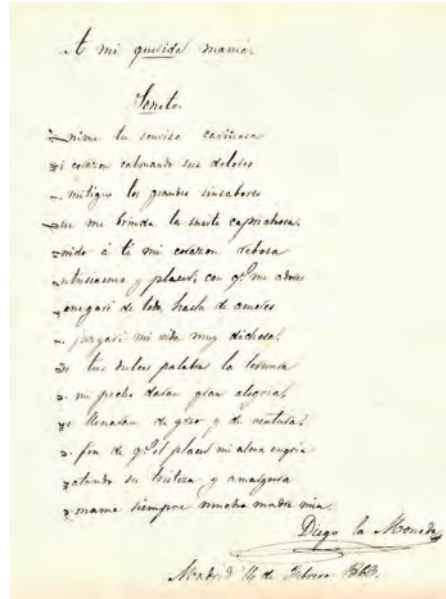 A mi querida mamá.
Soneto.
Anime tu sonrisa cariñosa
Mi corazon calmando sus dolores
I mitigue los grandes sinsabores
Que me brinda la suerte caprichosa.
Unido á ti mi corazon rebosa
Entusiasmo y placer, con q.e me adores
Renegaré de todo, hasta de amores
I juzgaré mi vida muy dichosa.
De tus dulces palabras la ternura
A mi pecho daran gran alegria,
Me llenaran de gozo y de ventura;
A fin de q.e el placer mi alma engria
Matando su tristeza y amargura
Amame siempre mucha madre mia.
Diego la Moneda
Madrid 14 de Febrero 1863.